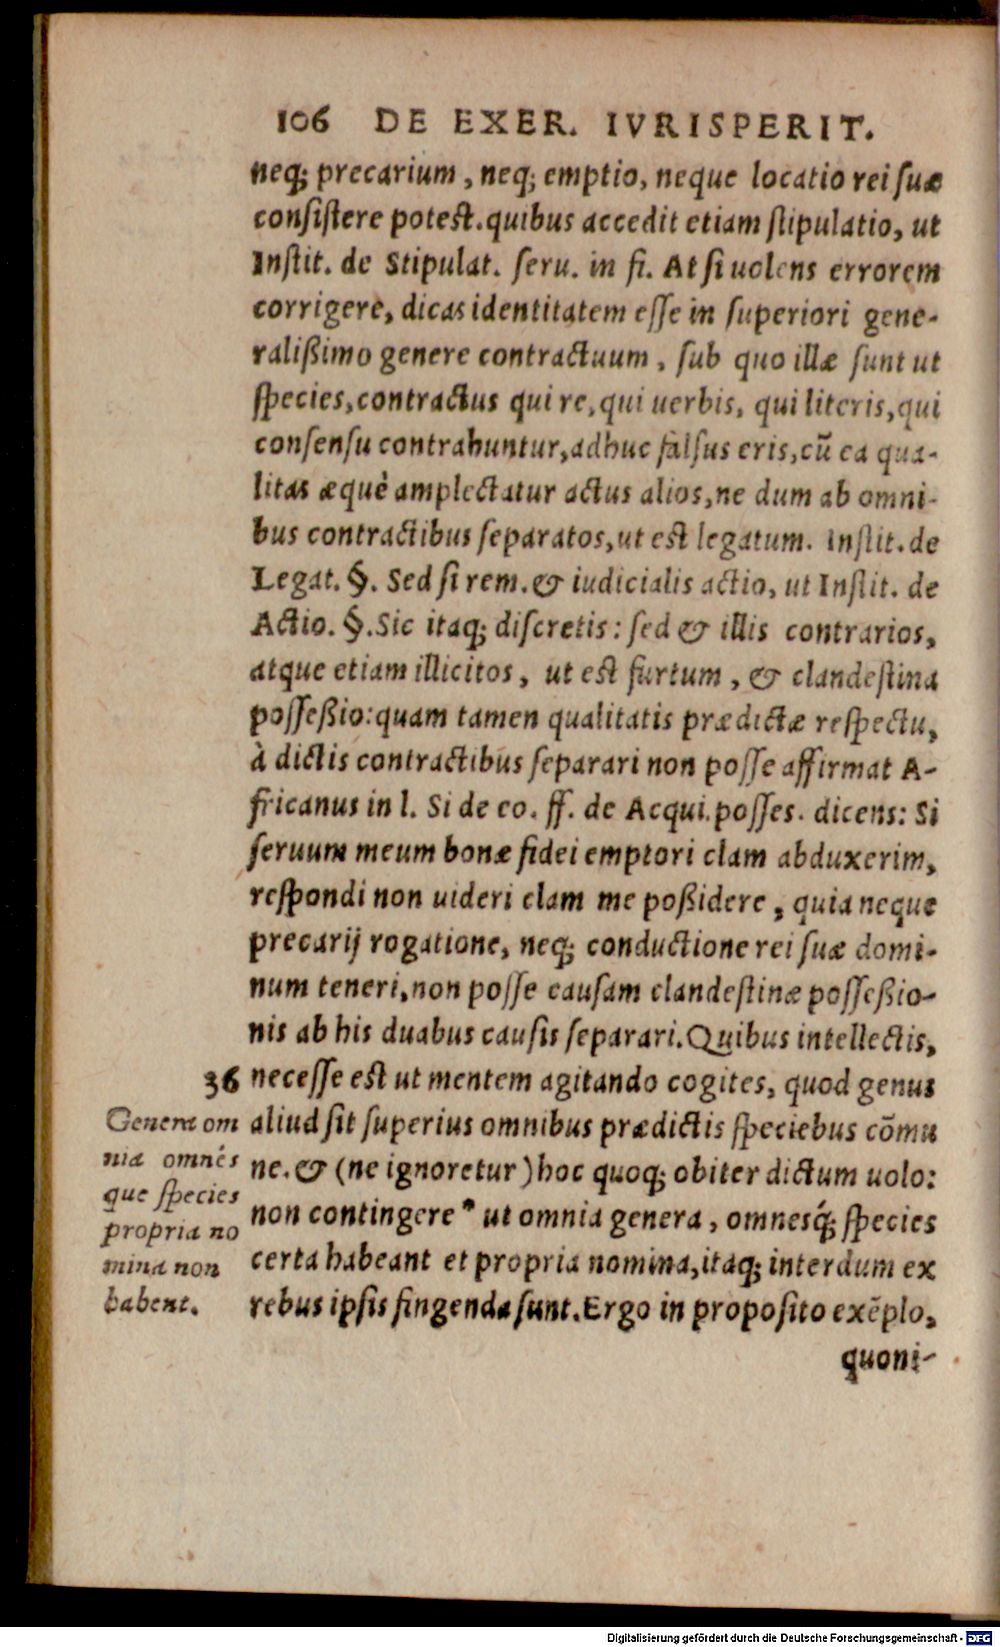 106 DE EXER. IVRISPERIT.
neq; precarium, neq; emptio, neque locatio rei ſuæ
conſiſtere poteſt. quibus accedit etiam ſtipulatio, ut
Inſtit. de Stipulat. ſeru. in fi. At ſi uolens errorem
corrigere, dicas identitatem eſſe in ſuperiori gene-
ralißimo genere contractuum, ſub quo illæ ſunt ut
ſpecies, contractus qui re, qui uerbis, qui literis, qui
conſenſu contrahuntur, adhuc falſus eris, cū ea qua-
litas æquè amplectatur actus alios, ne dum ab omni-
bus contractibus ſeparatos, ut eſt legatum. Inſtit. de
Legat. §. Sed ſi rem. & iudicialis actio, ut Inſtit. de
Actio. §. Sic itaq; diſcretis: ſed & illis contrarios,
atque etiam illicitos, ut eſt furtum, & clandeſtina
poſſeßio: quam tamen qualitatis prædictæ reſpectu,
à dictis contractibus ſeparari non poſſe affirmat A-
fricanus in l. Si de eo. ff. de Acqui. poſſeſ. dicens: Si
ſeruum meum bonæ fidei emptori clam abduxerim,
reſpondi non uideri clam me poßidere, quia neque
precarij rogatione, neq; conductione rei ſuæ domi-
num teneri, non poſſe cauſam clandeſtinæ poſſeßio-
nis ab his duabus cauſis ſeparari. Quibus intellectis,
36 neceſſe eſt ut mentem agitando cogites, quod genus
aliud ſit ſuperius omnibus prædictis ſpeciebus cōmu
ne. & (ne ignoretur) hoc quoq; obiter dictum uolo:
non contingere * ut omnia genera, omnesq́; ſpecies
certa habeant et propria nomina, itaq; interdum ex
rebus ipſis fingenda ſunt. Ergo in propoſito exēplo,
quoni-
Genera om
nia omnés
que ſpecies
propria no
mina non
habent.
Digitalisierung gefördert durch die Deutsche Forschungsgemeinschaft - DFG